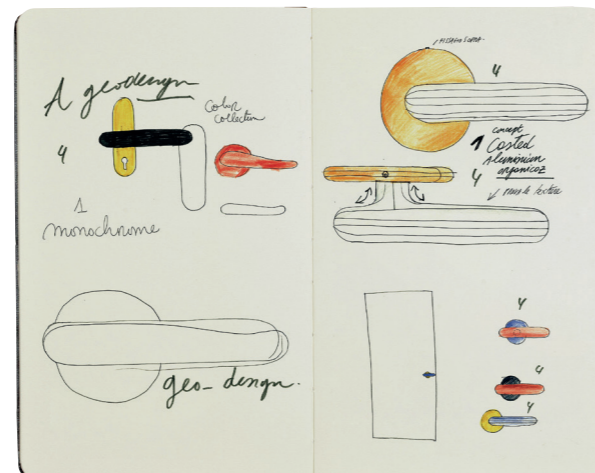 A geodesign
Color
collection
4
1
monochrome
geo_design.
4
concept
1 Casted
Aluminium
organicoz
4
texture
4
4
4